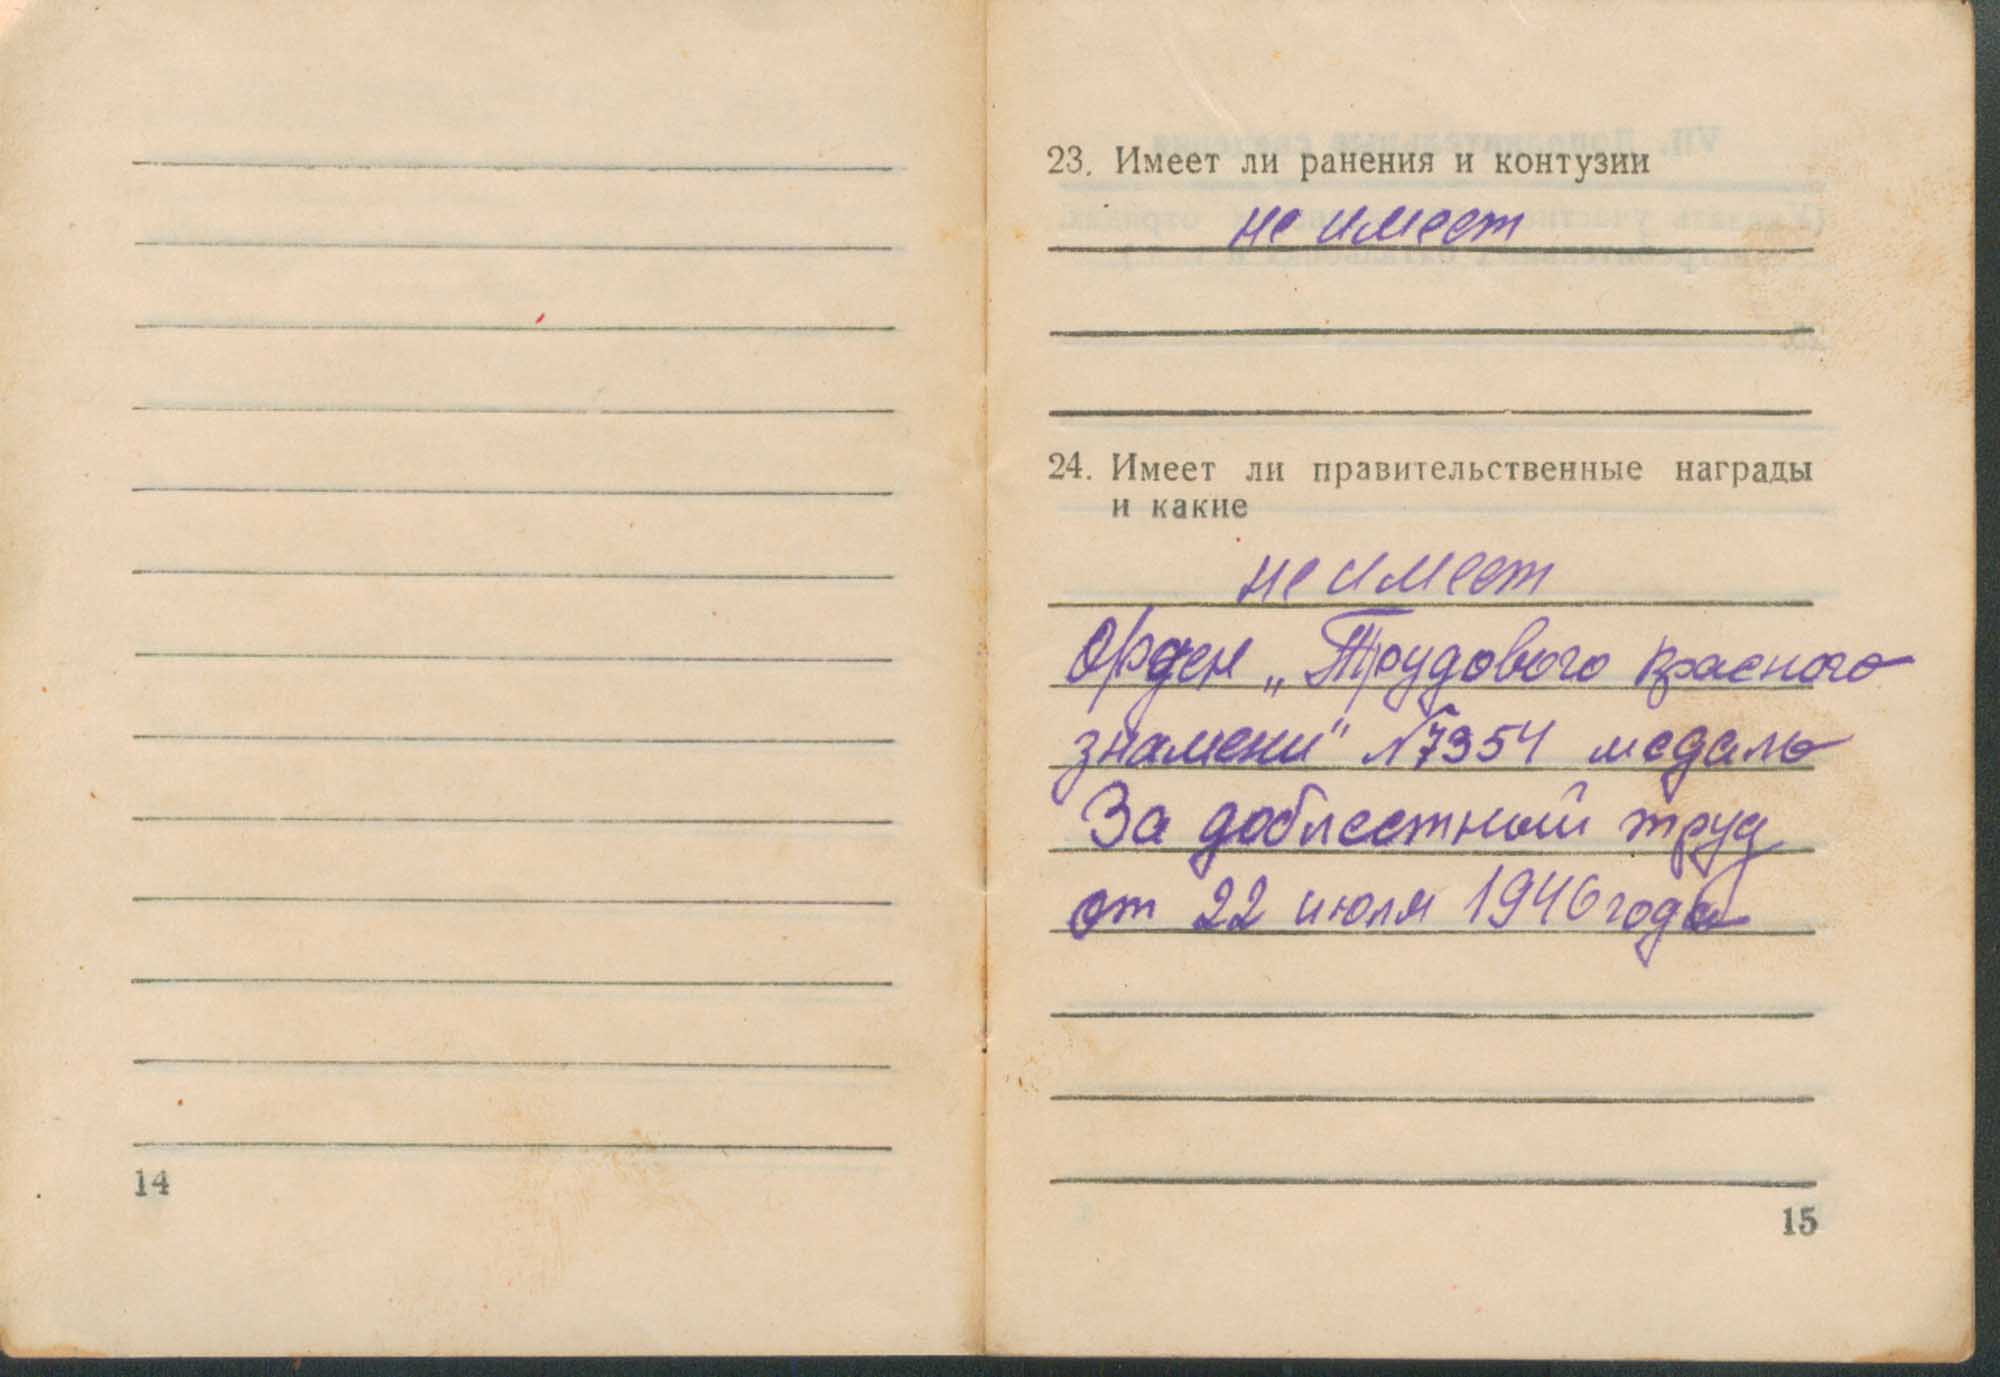 14
23. Имеет ли ранения и контузии
не имеет
24. Имеет ли правительственные награды
и какие
не имеет
Орден „Трудового красного
знамени" №7354 медаль
За доблестный труд
от 22 июля 1946 года
15